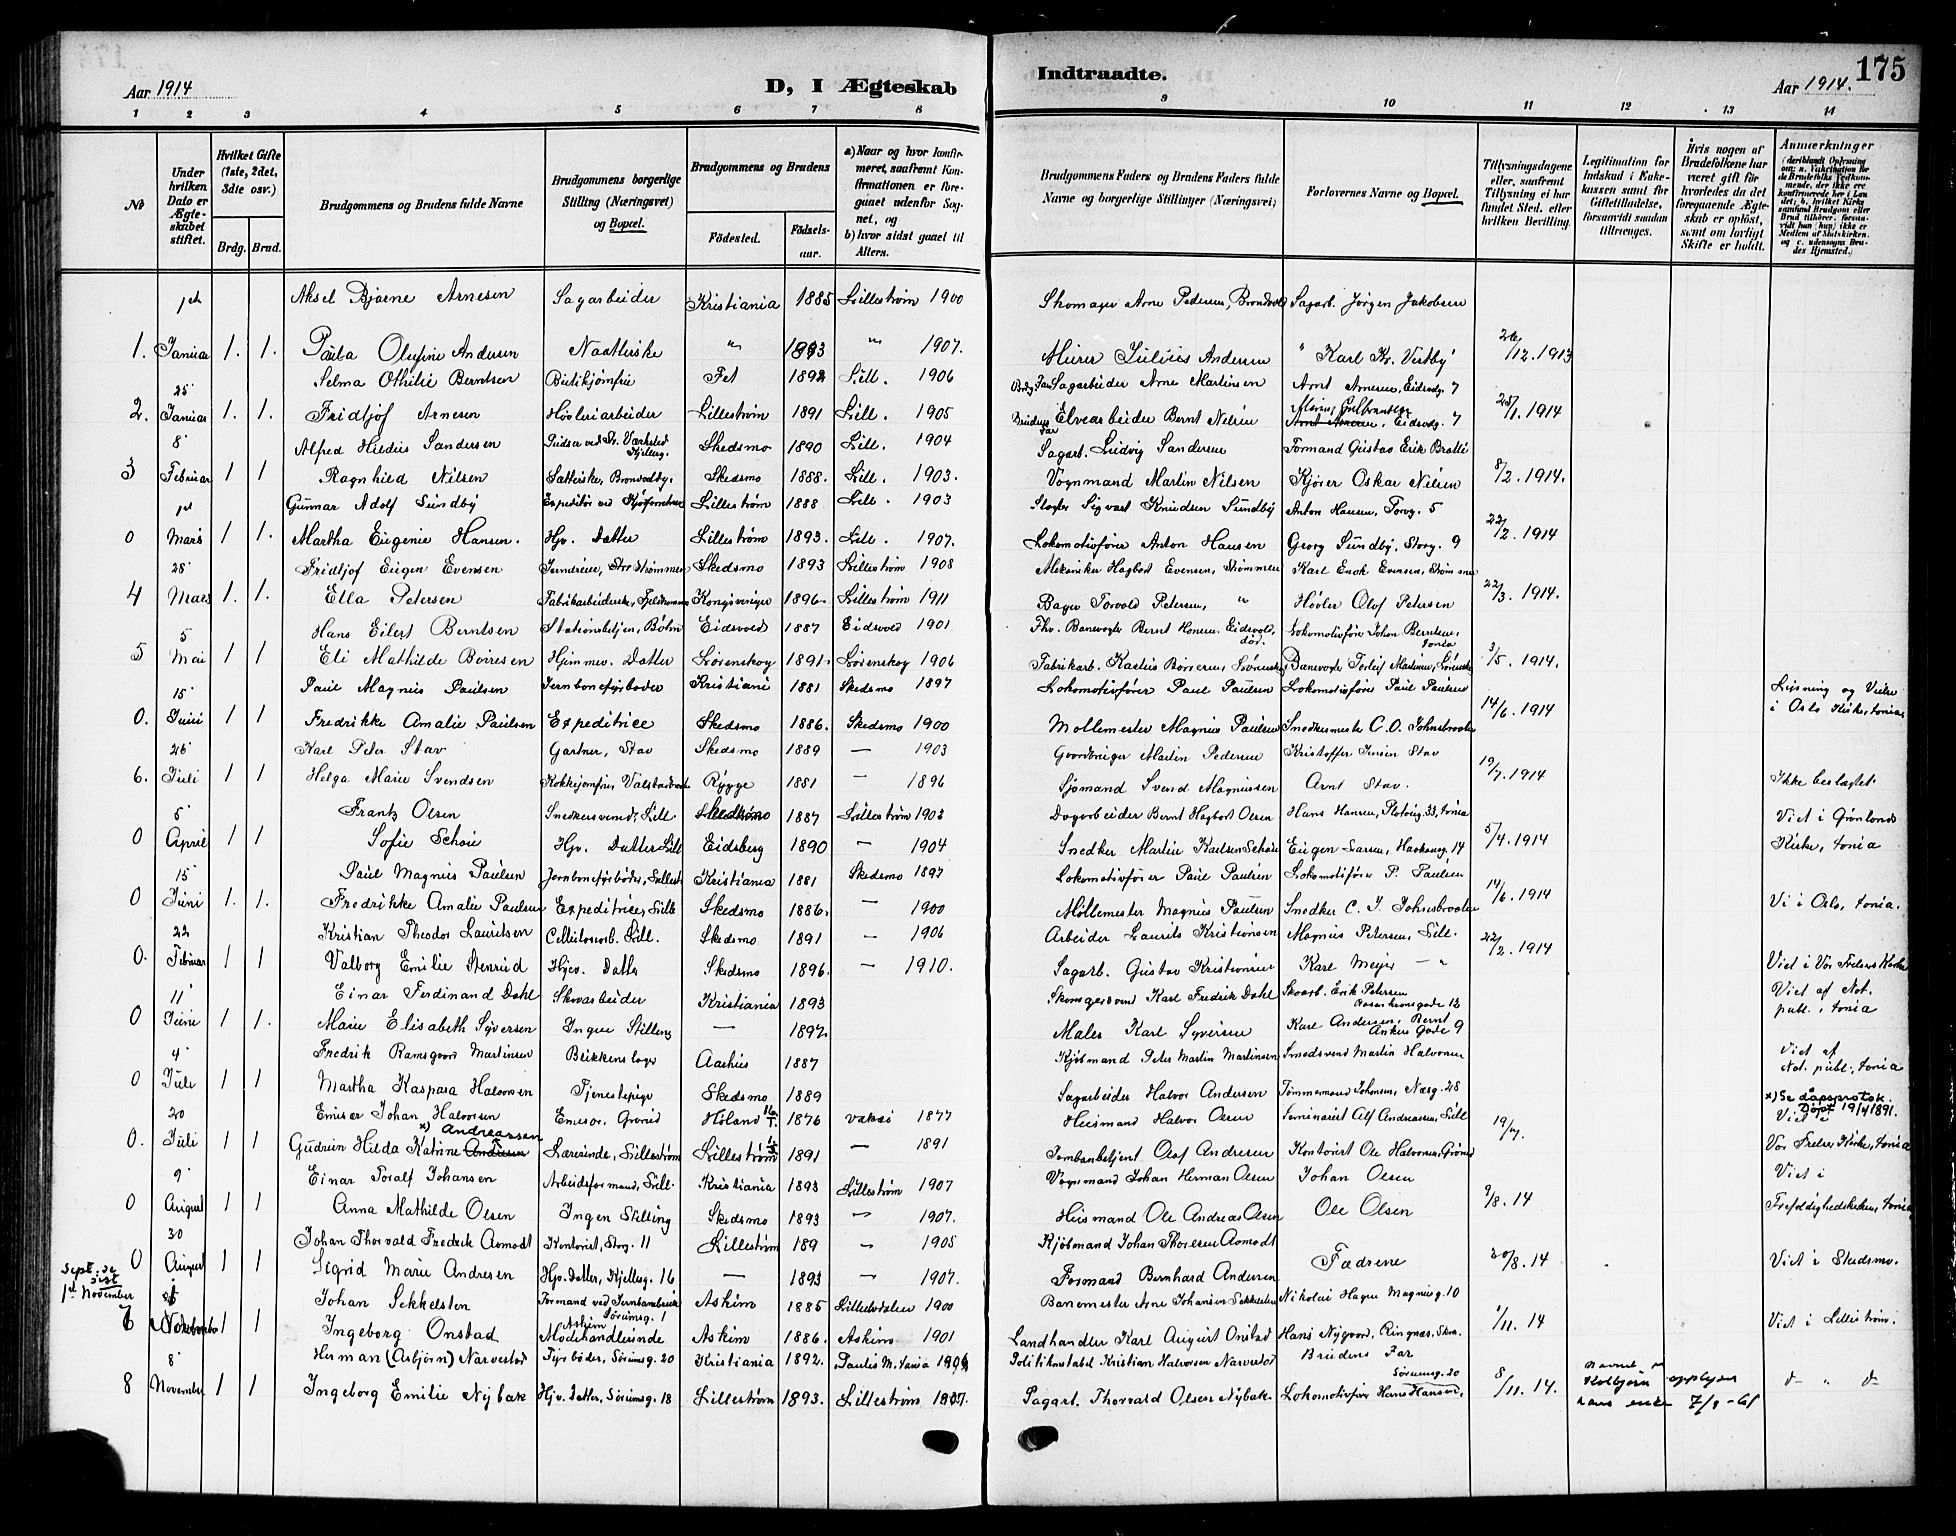 Aar 1914 D, I Ægteskab
Indtraadte. Aar 1914. 175
1 2 3 4 5 6 7 8
9 10 11 12 13 14
No
Under hvilken Dato er Ægteskabet stiftet.
Hvilket Gifte (1ste, 2det, 3die osv.)
Brdg. Brud.
Brudgommens og Brudens fulde Navne
Brudgommens borgerlige Stilling (Næringsvei) og Bopæl.
Brudgommens og Brudens
Fødested. Fødselsaar.
a) Naar og hvor konfirmeret, saafremt Konfirmationen er foregaaet udenfor Sognet, og
b) hvor sidst gaaet til Alters.
Brudgommens Faders og Brudens Faders fulde Navne og borgerlige Stillinger (Næringsvei)
Forlovernes Navne og Bopæl.
Tillysningsdagene eller, saafremt Tillysning ei har fundet Sted, efter hvilken Bevilling.
Legitimation for Indskud i Enkekassen samt for Giftetilladelse, forsaavidt saadan tiltrænges.
Hvis nogen af Brudefolkene har været gift før hvorledes da det foregaaende Ægteskab er opløst, samt om lovligt Skifte er holdt.
Anmerkninger
1st Aksel Bjarne Arnesen Sagarbeider Kristiania 1885 Lillestrøm 1900 Skomager Arne Pedersen, Sagarb. Jørgen Jakobsen
1. Januar 1. 1. Paula Olufine Andersen " 1893 " 1907. Murer Julius Andersen " Karl Kr. Vestby 26/12.1913
25 Selma Othilie Berntsen Fet 1892 Lill. 1906 Brdg. Far Sagarbeider Arne Martinsen Arnt Arnesen, Eidsvdg. 7
2. Januar 1. 1. Fridtjof Arnesen Høvleriarbeider Lillestrøm 1891 Lill. 1905 Brudens Far Elvearbeider Bernt Nilsen Eidsvdg. 7 25/1.1914
8 Alfred Hildus Sandersen Skedsmo 1890 Lill. 1904 Sagarb. Ludvig Sandersen Formand Gustav Erik Bratli
3 Februar 1 1 Ragnhild Nilsen Skedsmo 1888. Lill. 1903. Vognmand Martin Nilsen Kjører Oskar Nilsen 8/2.1914.
1st Gunnar Adolf Sundby Lillestrøm 1888 Lill. 1903 Sigvart Knudsen Sundby Anton Hansen, Torvg. 5
0 Mars 1 1. Martha Eugenie Hansen. Hjv. Datter Lillestrøm 1893. Lill. 1907. Lokomotivfører Anton Hansen Georg Sundby, Storg. 9 22/2.1914
28 Fridtjof Eugen Evensen Skedsmo 1893 Lillestrøm 1908 Mekaniker Hagbart Evensen, Strømmen Karl Enok Evensen, Strømmen
4 Mars 1. 1. Ella Petersen Kongsvinger 1896. Lillestrøm 1911 Bager Torvald Petersen, " Høvler Olaf Petersen 22/3.1914.
5 Hans Eilert Berntsen Stationsbetjen, Bøln Eidsvold 1887 Eidsvold 1901 Fhv. Banevogter Bernt Hansen, Eidsvold, død. Lokomotivfører Johan Berntsen, tania
5 Mai 1 1 Eli Mathilde Børresen Hjemmev. Datter Lørenskog 1891. Lørenskog 1906 Fabrikarb. Børresen, Lørenskog Banevogter Torleif Martinsen, Lørenskog 3/5.1914.
15 Paul Magnus Paulsen Jernbanefyrbøder Kristiania 1881 Skedsmo 1897 Lokomotivfører Paul Paulsen Lokomotivfører Paul Paulsen Lysning og Vielse
0. Juni 1 1 Fredrikke Amalie Paulsen Expeditrice Skedsmo 1886. Skedsmo 1900 Møllemester Magnus Paulsen Snedkermester C.O. Johnsbraaten 14/6.1914 i Oslo Kirke, tania.
26 Karl Peter Stav Gartner, Stav Skedsmo 1889 — 1903 Gaardbruger Martin Pedersen Kristoffer Jensen Stav
6. Juli 1 1 Helga Marie Svendsen Rygge 1881 — 1896 Sjømand Svend Magnussen Arnt Stav. 19/7.1914 Ikke beslægtet
5 Frantz Olsen Snedkersvend, Lill 1887 Lillestrøm 1903 Dagarbeider Bernt Hagbart Olsen Hans Hansen, 33, tania Viet i Grønlands
0 April 1 1 Sofie Schøie Hjv. Datter Lill Eidsberg 1890 — 1904 Snedker Martin Karlsen Schøie Eugen Larsen, Haakonsg. 14 5/4.1914 Kirke, tania
15 Paul Magnus Paulsen Jernbanefyrbøder, Lillestr. Kristiania 1881 Skedsmo 1897 Lokomotivfører Paul Paulsen Lokomotivfører P. Paulsen
0 Juni 1. 1. Fredrikke Amalie Paulsen Expeditrice, Lille Skedsmo 1886. — 1900 Møllemester Magnus Paulsen Snedker C. J. Johnsbraaten 14/6.1914 Vi i Oslo, tania.
22 Kristian Theodor Lauritsen Cellulosearb. Lill. Skedsmo 1891 — 1906 Arbeider Laurits Kristiansen Magnus Petersen, Lill.
0. Februar 1 1 Valborg Emilie Stenrud Hjev. Datter Skedsmo 1896. — 1910. Sagarb. Gustav Kristiansen Karl Meyer — " 22/2.1914 Viet i Vor Frelsers Kirke
11 Einar Ferdinand Dahl Skoarbeider Kristiania 1893 Skomagersvend Karl Fredrik Dahl Skoarb. Erik Petersen Rosenkransgade 12 Viet af Not.
0 Juni 1 1. Marie Elisabeth Syversen Ingen Stilling — 1892. Maler Karl Syversen Karl Andersen, Bernt Ankers Gade 9 publ. i tania
4 Fredrik Ramsgaard Martinsen Blikkenslager Aarhus 1887 Kjøbmand Peter Martin Martinsen Smedsvend Martin Halvorsen Viet af
0 Juli 1 1 Martha Kaspara Halvorsen Tjenestepige Skedsmo 1889 Sagarbeider Halvor Andersen Tømmermand Johansen, Næsg. 28 Not. publ., tania
20 Emisær Johan Halvorsen Emisær, Grorud Høland 1876 vaksø 1877 Husmand Halvor Olsen Seminarist Alf Andreassen, Lill x) Se dåpsprotok. Døpt 19/4 1891. Viet i
0. Juli 1 1 Gudrun Hilda Katrine x) Andreassen Lærerinde, Lillestrøm Lillestrøm 1891 — 1891 Tombanbetjent Olaf Andresen Kontorist Ole Halvorsen, Grorud 19/7. Vor Frelser Kirke, tania
9 Einar Toralf Johansen Arbeidsformand, Lill. Kristiania 1893 Lillestrøm 1907 Vognmand Johan Herman Olsen Johan Olsen Viet i
0 August 1 1 Anna Mathilde Olsen Ingen Stilling Skedsmo 1893 — 1907. Husmand Ole Andreas Olsen Ole Olsen 9/8.14 Trefoldighedskirken, tania
30 Johan Thorvald Fredrik Aamodt Kontorist, Storg. 11 Lillestrøm 189 " 1905 Kjøbmand Johan Thoresen Aamodt
0 August 1 1 Sigrid Marie Andresen Hjv. Datter, Kjellerg. 16 — 1893 — 1907. Formand Bernhard Andersen Fædrene 30/8.14 Viet i Skedsmo.
Sept. se sist
1st November Johan Sekkelsten Formand ved Jernbanebruk Sørumsg. 1 Askim 1885 1900 Banemester Arne Johansen Sekkelsten Nikolai Hagen Magnusg. 10
7 1 1 Ingeborg Onstad Askim Modehandlerinde Askim 1886. Askim 1901 Landhandler Karl August Onstad Hans Nygaard, 1/11.14 Viet i Lillestrøm.
8 Herman (Asbjørn) Narvestad Fyrbøder, Sørumsg. 20 Kristiania 1892. Paulus M. tania Politikonstabel Kristian Halvorsen Narvestad Brudens Far
8 November 1 1 Ingeborg Emilie Nybak Hjv. Datter, Sørumsg. 18 Lillestrøm 1893. Lillestrøm 1907. Sagarb. Thorvald Olsen Nybak Lokomotivfører Hans Hansen, Sørumsg. 20 8/11.14. d " d